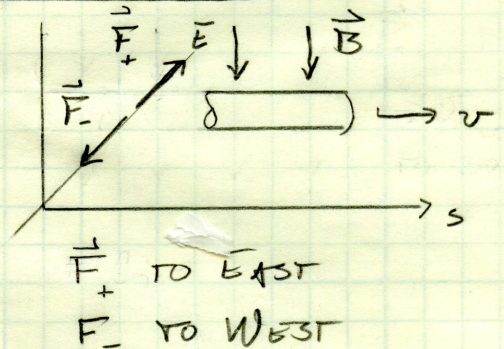 F⃗₊ E B⃗
F⃗₋
v
s
F⃗₊ TO EAST
F₋ TO WEST